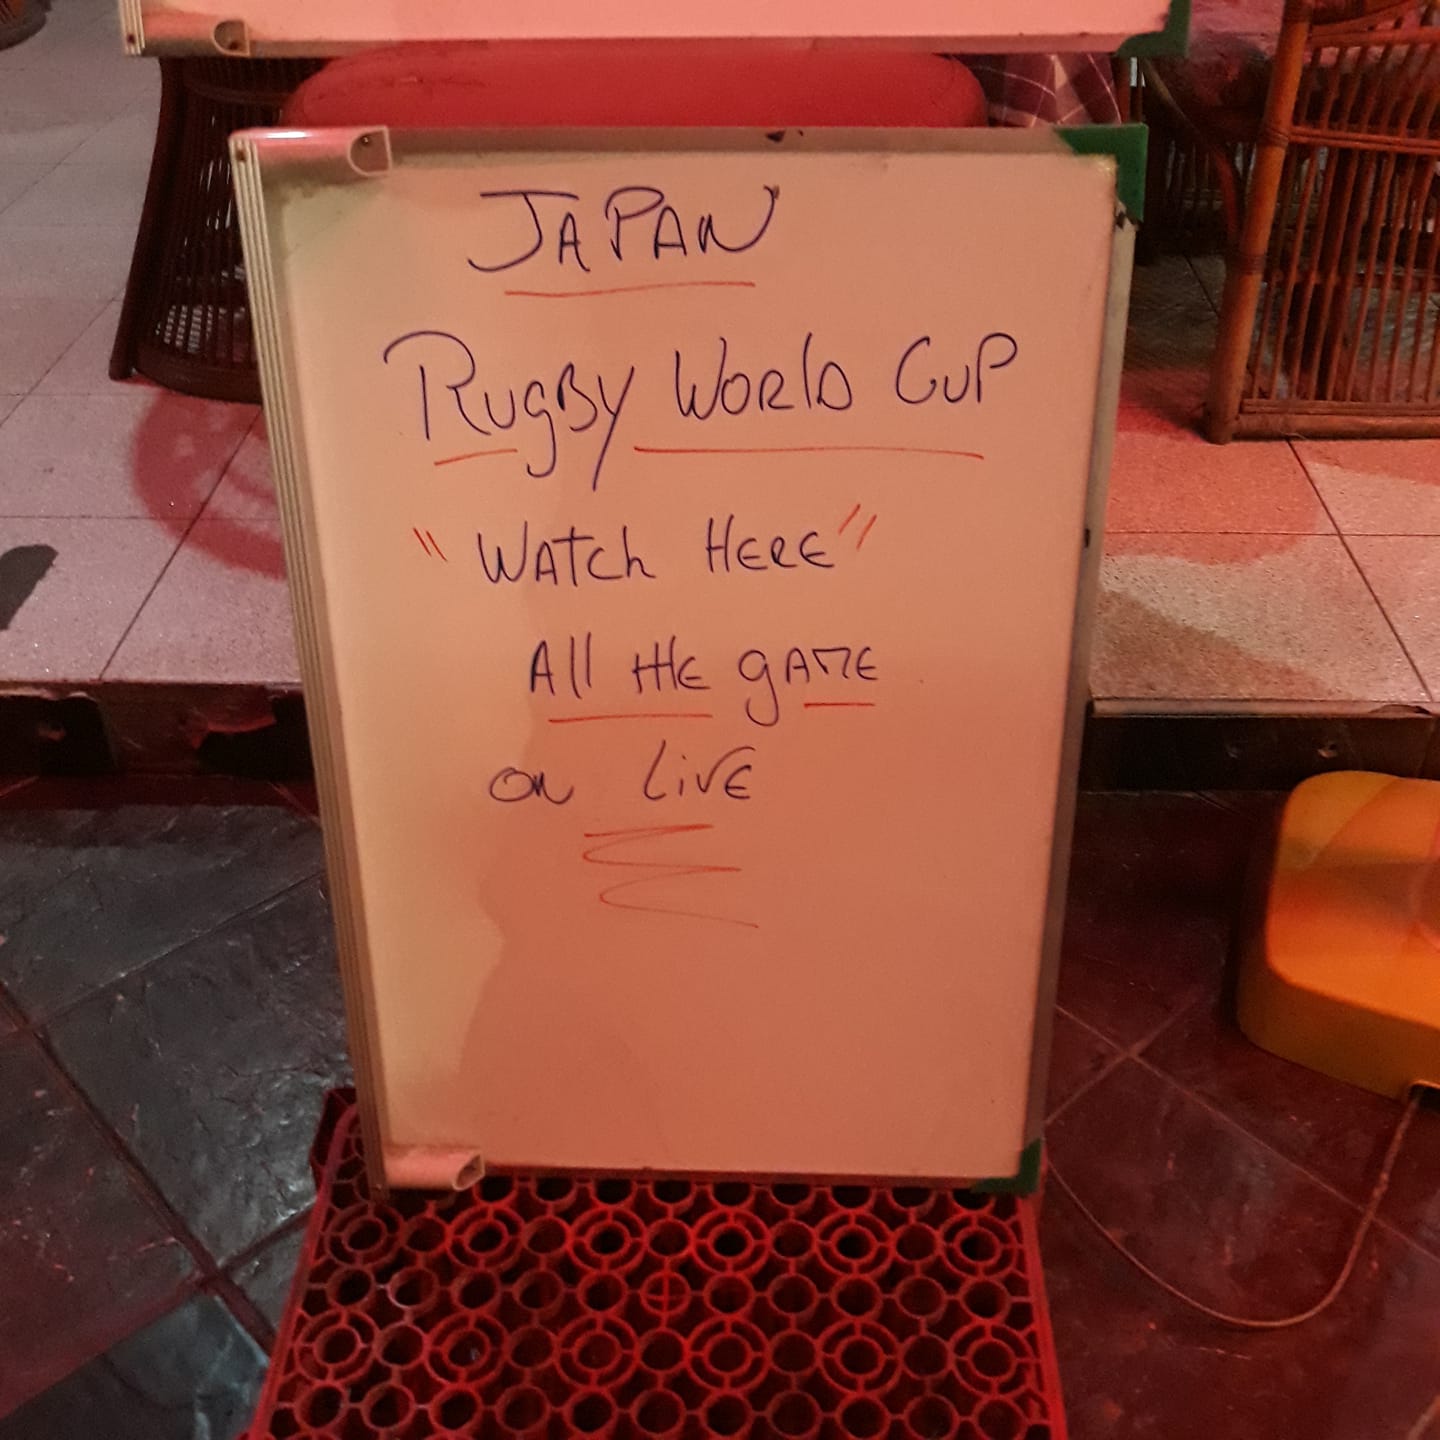 JAPAN
RugBy WORlD CuP
"WATch HERE"
All tHE gAME
on LivE